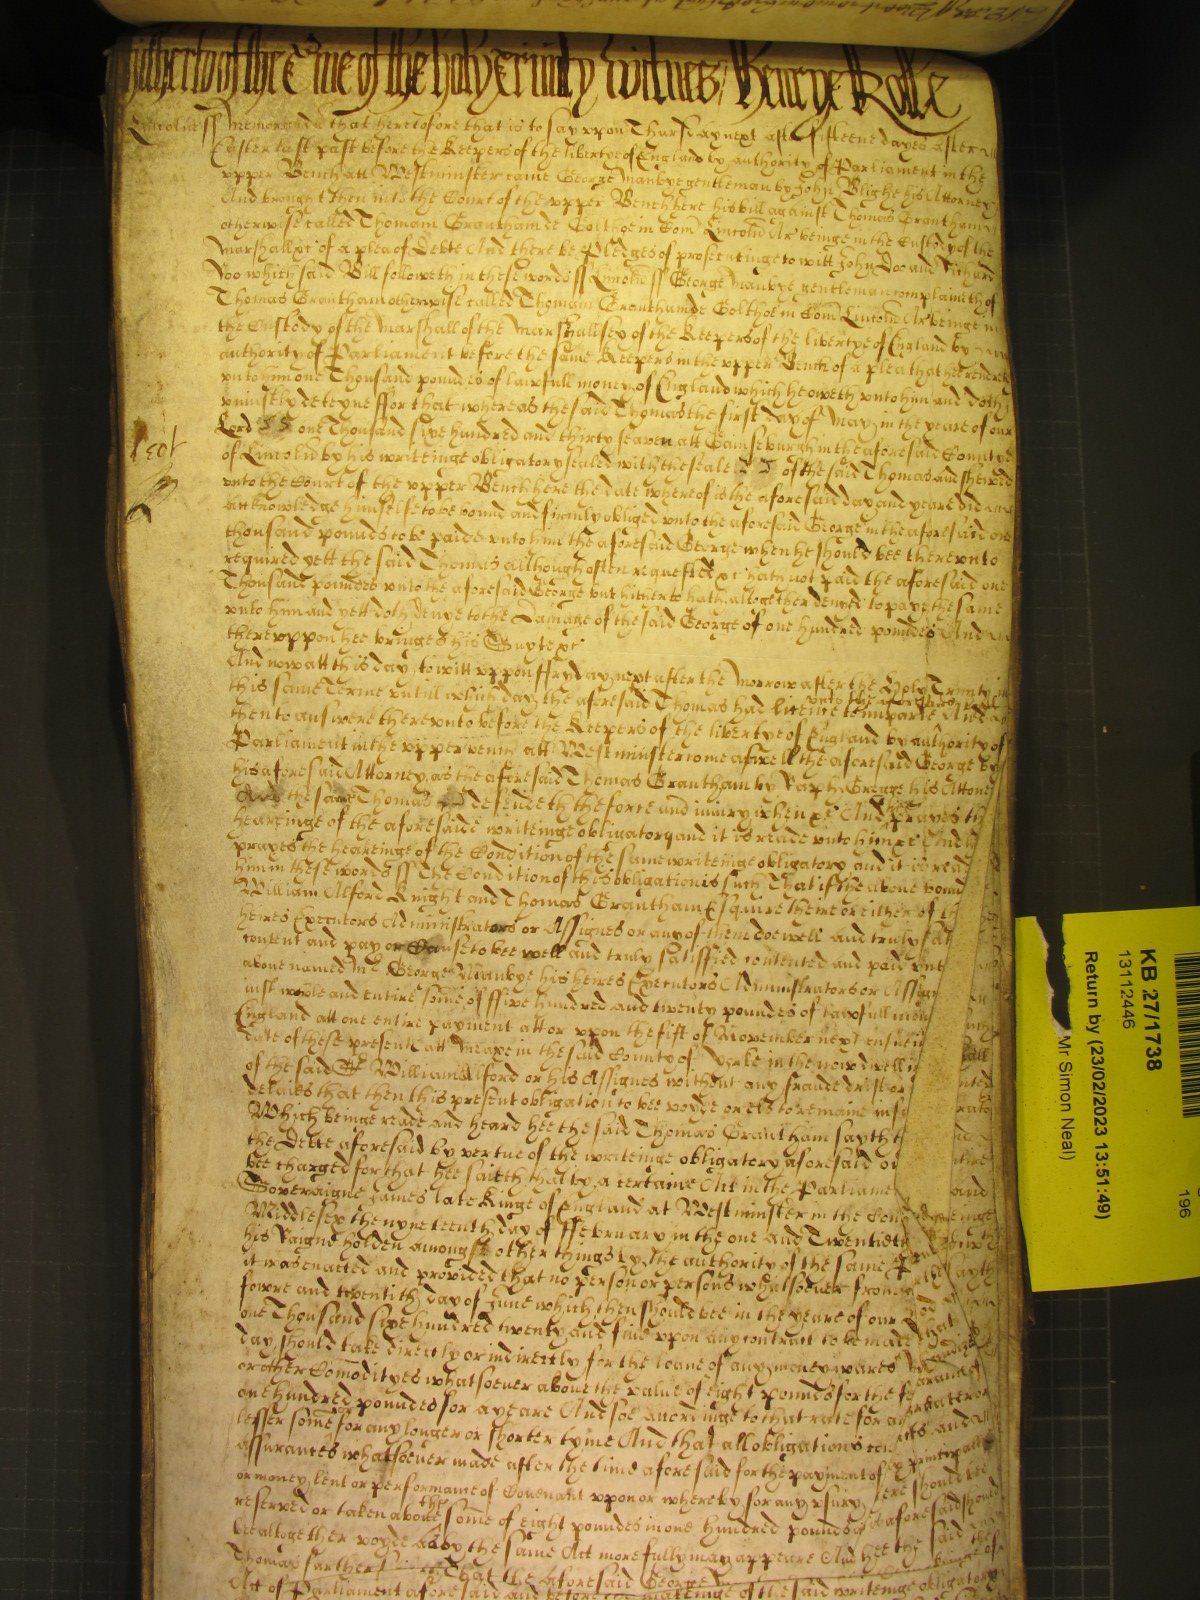 hitherto of the Tme of the holy Trinity witnes / Henrye Rolle
Lincolne ss Memorand that heretofore that is to say vpon Thursday next after fifteene dayes after
Easter last past before the Keepers of the libertye of England by authority of Parliament in the
vpper Bench att Westminster came George Manbye gentleman by John Blighe his Attorney
And brought then into the Court of the vpper Bench here his bill against Thomas Grantham
otherwise called Thomam Grantham de Golthoe in Com Lincoln Ar beinge in the Custody of the
Marshall xc of a plea of Debte And there be Pledges of prosecutinge to witt John Doo and Richard
Roo which said Bill followeth in these words ss Lincoln ss George Manbye gentleman complaineth of
Thomas Grantham otherwise called Thomam Grantham de Golthoe in Com Lincoln Ar beinge in
the Custody of the Marshall of the Marshallsey of the Keepers of the libertye of England by
authority of Parliament before the same Keepers in the vpper Bench of a plea that hee render
vnto him one Thousand poundes of lawfull money of England which he oweth vnto him and doth
vniustly deteyne ffor that whereas the said Thomas the first day of May in the yeare of our
Lord one Thousand sixe hundred and thirty seaven att Gainseburgh in the aforesaid Countye
of Lincoln by his writeinge obligatory sealed with the seale of the said Thomas and shewed
vnto the Court of the vpper Bench here the date whereof is the aforesaid day and yeare did
acknowledge himselfe to be bound and firmly obliged vnto the aforesaid George in the aforesaid one
thousand pounds to be paide vnto him the aforesaid George when he should bee therevnto
required yett the said Thomas although often requested xc hath not paid the aforesaid one
Thousand poundes vnto the aforesaid George but hitherto hath altogether denyed to paye the same
vnto him and yett doth denye to the Damage of the said George of one hundred poundes And
therevppon hee bringes his Suyte xc
1301
And now att this day to witt vppon ffryday next after the Morrow after the Holy Trinity in
this same Terme vntill which day the aforesaid Thomas had licence to imparle And
then to answere therevnto before the Keepers of the libertye of England by authority of
Parliament in the vpper bench att Westminster come aswell the aforesaid George by
his aforesaid Attorney as the aforesaid Thomas Grantham by Raph Gregge his Attorney
And the same Thomas defendeth the force and iniury when xc And prayes the
heareinge of the aforesaide writeinge obligatory and it is reade vnto him xc And he
prayes the heareinge of the Condition of the same writeinge obligatory and it is read
him in these words ss The Condition of this obligation is such That if the above bound
William Alford Knight and Thomas Grantham Esquire theire or either of th
heires Executors Administrators or Assignes or any of them doe well and truly sat
content and pay or Cause to bee well and truly satisfied contented and paid vnt
above named Mr George Manbye his heires Executors Administrators or Assign
iust whole and entire some of ffive hundred and twenty poundes of lawfull mon
England att one entire payment att or vpon the fift of November next ensuein
date of these presents att Meaxe in the said County of Yorke in the now dwelli
of the said Sr William Alford or his Assignes without any fraude drift or
delaies that then this present obligation to bee voyde or els to remaine in f
Which beinge reade and heard hee the said Thomas Grantham sayth t
the Debte aforesaid by vertue of the writeinge obligatory aforesaid ou
bee charged for that hee saieth that by a certaine Act in the Parliame
Soveraigne James late Kinge of England at Westminster in the Coun
Middlesex the nyneteenth day of ffebruary in the one And Twentieth
his Raigne holden amongst other things by the authority of the same P
it was enacted and provided that no person or persons whatsoever from
fowre and twentith day of June which then should bee in the yeare of our
one Thousand sixe hundred twenty and five vpon any contract to be made
day should take directly or indirectly for the loane of any money wares
or other Comodityes whatsoever above the value of eight pounds for the fo
one hundred poundes for a yeare And soe accordinge to that rate for a greater or
lesser some or for any longer or shorter tyme And that all obligations con
assurances whatsoever made after the time aforesaid for the payment of principall
or money lent or performance of Covenant vpon or whereby for any vsury there should bee
reserved or taken above the some of eight poundes in one hundred poundes as aforesaid should
be altogether voyde As by the same Act more fully may appeare And hee the said
Thomas farther That the aforesaid George
Act of Parliament aforesaid and before the makeinge of the said writeinge obligatory
KB 27/1738
13112446
Return by (23/02/2023 13:51:49)
Mr Simon Neal)
196